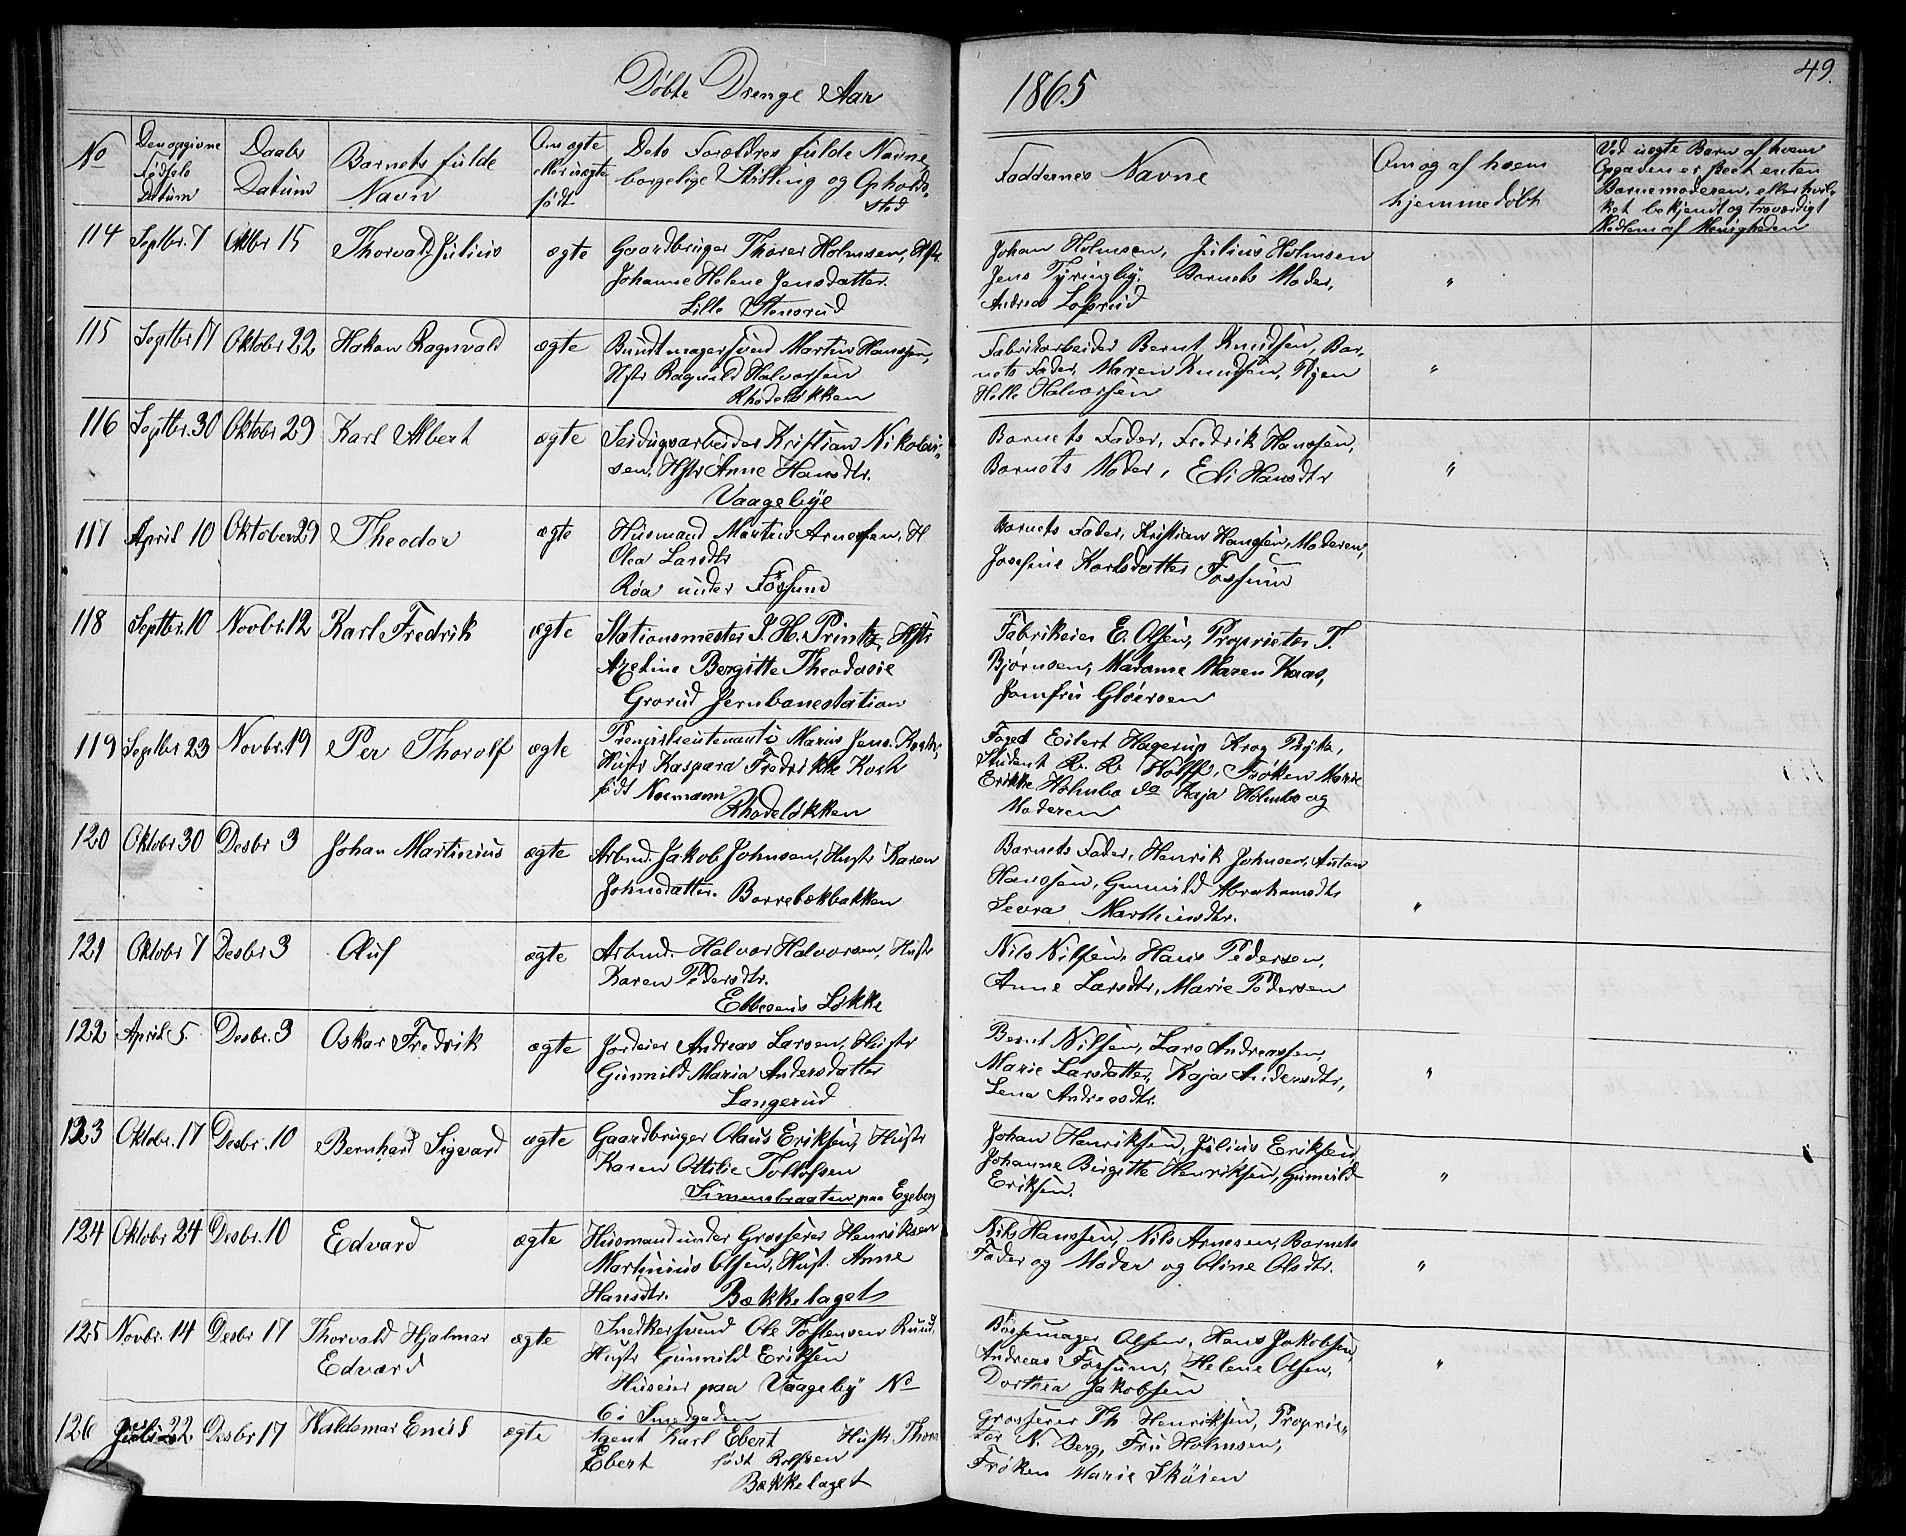 Døbte Drenge Aar 1865
49.
No
Den opgivne Fødsels Datum
Daabs Datum
Barnets fulde Navn
Om ægte eller uægte født
Dets Forældres fulde Navne borgelige Stilling og Opholdssted
Faddernes Navne
Om og af hvem hjemmedøbt
Ved uægte Barn af hvem Opgaven er skeet enten Barnemoderen, eller hvilket bekjendt og troværdigt Medlem af Menigheden
114 Septbr. 7 Oktbr 15 Thorvald Julius ægte Gaardbruger Thorer Holmsen, Hstr.
Johanne Helene Jensdatter.
Lille Stensrud
Johan Holmsen, Julius Holmsen
Jens Tyringby. Barnets Moder,
Andreas Losrud
"
115 Septbr 17 Oktobr 22 Hakon Ragnvald ægte Buntmagersvend Martin Hanssen,
Hstr Ragnild Halvorsen
Rhodeløkken
Fabrikarbeider Bernt Knudsen, Bar-
nets Fader, Maren Knudsen,
Helle Halvorsen
"
116 Septbr. 30 Oktobr 29 Karl Albert ægte Seidugsarbeider Kristian Nikolai-
sen, Hstr Anne Hansdtr.
Vaagebye
Barnets Fader, Fredrik Hanssen,
Barnets Moder, Eli Hansdtr
"
117 April 10 Oktober 29 Theodor ægte Husmand Martin Arnesen, H
Olea Larsdtr
Røa under Fossum
Barnets Fader, Kristian Hanssen, Moderen,
Josefine Karlsdatter Fossum
118 Septbr. 10 Novbr. 12 Karl Fredrik ægte Stationsmester J. H. Printz, Hstr
Axeline Bergitte Theodosie
Grorud Jernbanestation
Fabrikeier E. Olsen, Proprietær T.
Bjørnsen, Madame Maren Kaas,
Jomfru Gløersen
119 Septbr 23 Novbr. 19 Per Thorolf ægte Premierlieutenant Marius Jens. Koch,
Hustr Kaspara Fredrikke Koch
født Normann
Rhodeløkken
Foged Eilert Hagerup Krog Prytz,
Student R. R. Wolff, Frøken Marie
Erikke Holmbo do Kaja Holmbo og
Moderen
120 Oktobr 30 Desbr 3 Johan Martinius ægte Arbmd. Jakob Johnsen, Hustr Karen
Johnsdatter. Borrebækbakken
Barnets Fader, Henrik Johnsen, Anton
Hanssen, Gunnild Abrahamsdtr
Sevra Marthinsdtr.
"
121 Oktobr 7 Desbr 3 Oluf ægte Arbmd. Halvor Halvorsen, Hustr
Karen Pedersdtr.
Ebbesens Løkke
Nils Nilsen, Hans Pedersen,
Anne Larsdtr, Marie Pedersen
122 April 5. Desbr. 3 Oskar Fredrik ægte Jordeier Andreas Larsen, Hustr
Gunnild Maria Andersdatter
Langerud
Bernt Nilsen, Lars Andreassen,
Marie Larsdatter, Kaja Andersdtr,
Lena Andreasdtr.
"
123 Oktobr. 17 Desbr. 10 Bernhard Sigvard ægte Gaardbruger Olaus Eriksen, Hustr
Karen Ottilie Tollofsen
Simensbraaten paa Egeberg
Johan Henriksen, Julius Eriksen
Johanne Birgitte Henriksen, Gunnild
Eriksen.
"
124 Oktobr 24 Desbr. 10 Edvard ægte Husmand under Grosserer Henriksen
Martinius Olsen, Hust. Anne
Hansdtr. Bækkelaget
Nils Hanssen, Nils Arnesen, Barnets
Fader og Moder og Oline Olsdtr.
"
125 Novbr. 14 Desbr 17 Thorvald Hjalmar
Edvard
ægte Snedkersvend Ole Torstensen Ruud,
Hustr Gunnild Eriksen
Huseier paa Vaageby No
6 i Smedgaden
Bøssemager Olsen, Hans Jakobsen,
Andreas Fossum, Helene Olsen,
Dorthea Jakobsen
"
126 Juli 22 Desbr 17 Waldemar Emil ægte Agent Karl Ebert Hustr Thora
Ebert født Rolfsen
Bækkelaget
Grosserer Th Henriksen, Proprie-
tær N. Berg, Fru Holmsen,
Frøken Marie Skøien